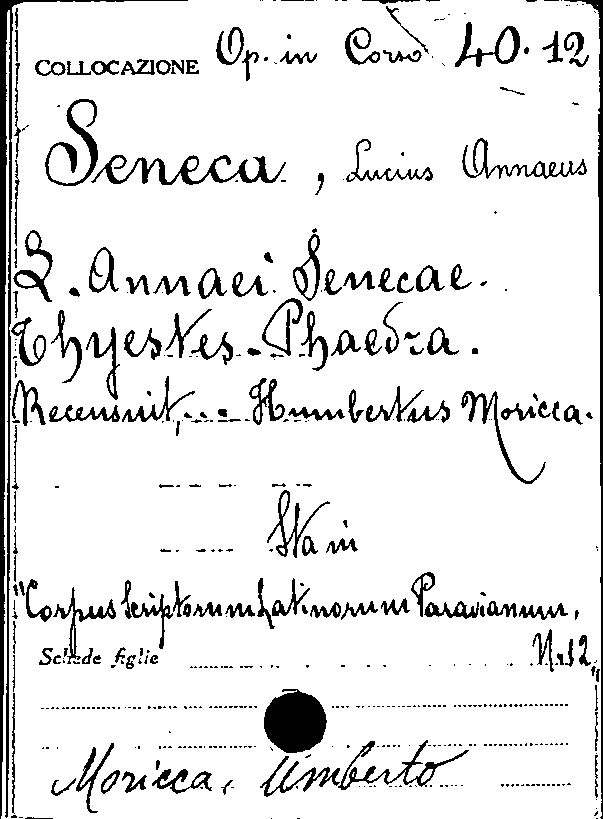 COLLOCAZIONE Op. in Corso 40.12
Seneca, Lucius Annaeus
L. Annaei Senecae.
Thyestes-Phaedra.
Recensuit,... Humbertus Moricca.
Sta in
"Corpus Scriptorum Latinorum Paravianum,
Schede figlie N.12"
Moricca, Umberto